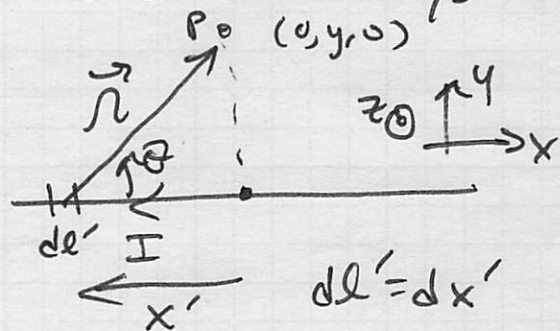 P (0, y, 0)
r
θ
z y
x
dl'
I
x'
dl' = dx'